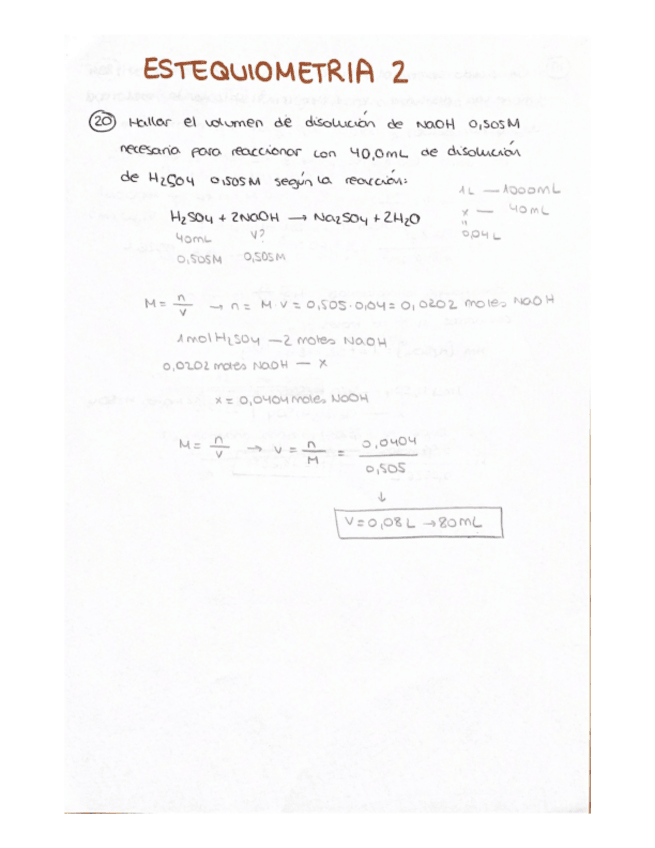 ESTEQUIOMETRIA 2
20 Hallar el volumen de disolución de NaOH 0,505M
necesaria para reaccionar con 40,0mL de disolución
de H2SO4 0,505M según la reacción:
1L — 1000mL
x — 40mL
"
0,04L
H2SO4 + 2NaOH → Na2SO4 + 2H2O
40mL V?
0,505M 0,505M
M = n/V → n = M·V = 0,505·0,04 = 0,0202 moles NaOH
1mol H2SO4 — 2 moles NaOH
0,0202 moles NaOH — x
x = 0,0404 moles NaOH
M = n/V → V = n/M = 0,0404/0,505
↓
V = 0,08L → 80mL